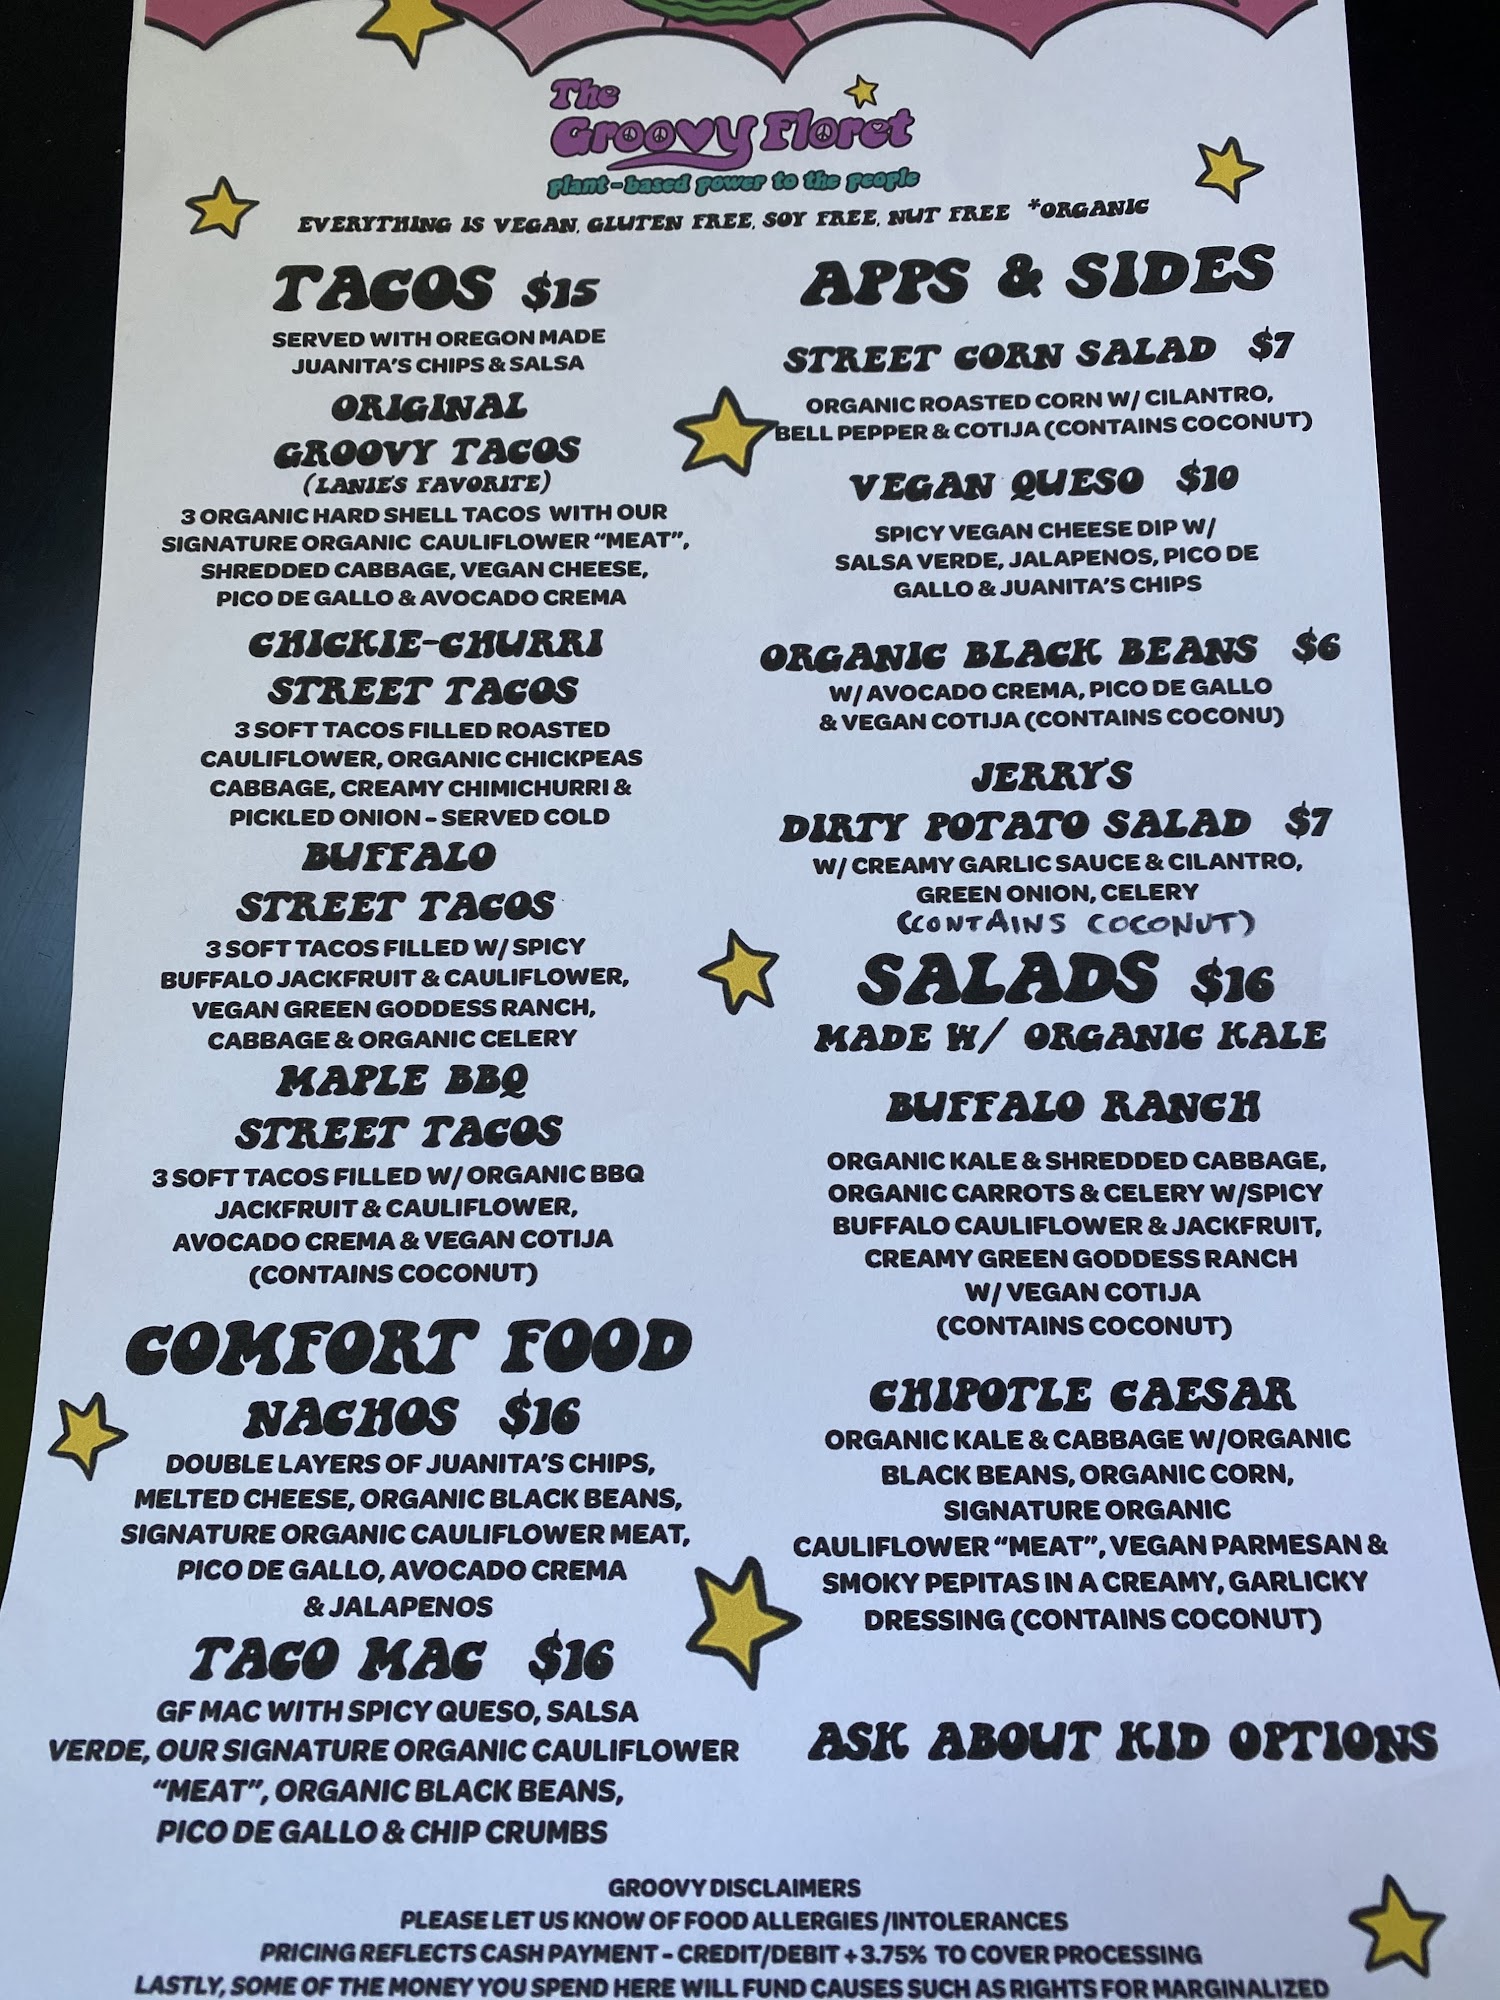 The
Groovy Floret
plant-based power to the people
EVERYTHING IS VEGAN, GLUTEN FREE, SOY FREE, NUT FREE *ORGANIC
TACOS $15
SERVED WITH OREGON MADE
JUANITA'S CHIPS & SALSA
ORIGINAL
GROOVY TACOS
(LANIE'S FAVORITE)
3 ORGANIC HARD SHELL TACOS WITH OUR
SIGNATURE ORGANIC CAULIFLOWER "MEAT",
SHREDDED CABBAGE, VEGAN CHEESE,
PICO DE GALLO & AVOCADO CREMA
CHICKIE-CHURRI
STREET TACOS
3 SOFT TACOS FILLED ROASTED
CAULIFLOWER, ORGANIC CHICKPEAS
CABBAGE, CREAMY CHIMICHURRI &
PICKLED ONION - SERVED COLD
BUFFALO
STREET TACOS
3 SOFT TACOS FILLED W/ SPICY
BUFFALO JACKFRUIT & CAULIFLOWER,
VEGAN GREEN GODDESS RANCH,
CABBAGE & ORGANIC CELERY
MAPLE BBQ
STREET TACOS
3 SOFT TACOS FILLED W/ ORGANIC BBQ
JACKFRUIT & CAULIFLOWER,
AVOCADO CREMA & VEGAN COTIJA
(CONTAINS COCONUT)
COMFORT FOOD
NACHOS $16
DOUBLE LAYERS OF JUANITA'S CHIPS,
MELTED CHEESE, ORGANIC BLACK BEANS,
SIGNATURE ORGANIC CAULIFLOWER MEAT,
PICO DE GALLO, AVOCADO CREMA
& JALAPENOS
TACO MAC $16
GF MAC WITH SPICY QUESO, SALSA
VERDE, OUR SIGNATURE ORGANIC CAULIFLOWER
"MEAT", ORGANIC BLACK BEANS,
PICO DE GALLO & CHIP CRUMBS
APPS & SIDES
STREET CORN SALAD $7
ORGANIC ROASTED CORN W/ CILANTRO,
BELL PEPPER & COTIJA (CONTAINS COCONUT)
VEGAN QUESO $10
SPICY VEGAN CHEESE DIP W/
SALSA VERDE, JALAPENOS, PICO DE
GALLO & JUANITA'S CHIPS
ORGANIC BLACK BEANS $6
W/ AVOCADO CREMA, PICO DE GALLO
& VEGAN COTIJA (CONTAINS COCONU)
JERRY'S
DIRTY POTATO SALAD $7
W/ CREAMY GARLIC SAUCE & CILANTRO,
GREEN ONION, CELERY
(CONTAINS COCONUT)
SALADS $16
MADE W/ ORGANIC KALE
BUFFALO RANCH
ORGANIC KALE & SHREDDED CABBAGE,
ORGANIC CARROTS & CELERY W/SPICY
BUFFALO CAULIFLOWER & JACKFRUIT,
CREAMY GREEN GODDESS RANCH
W/ VEGAN COTIJA
(CONTAINS COCONUT)
CHIPOTLE CAESAR
ORGANIC KALE & CABBAGE W/ORGANIC
BLACK BEANS, ORGANIC CORN,
SIGNATURE ORGANIC
CAULIFLOWER "MEAT", VEGAN PARMESAN &
SMOKY PEPITAS IN A CREAMY, GARLICKY
DRESSING (CONTAINS COCONUT)
ASK ABOUT KID OPTIONS
GROOVY DISCLAIMERS
PLEASE LET US KNOW OF FOOD ALLERGIES /INTOLERANCES
PRICING REFLECTS CASH PAYMENT - CREDIT/DEBIT +3.75% TO COVER PROCESSING
LASTLY, SOME OF THE MONEY YOU SPEND HERE WILL FUND CAUSES SUCH AS RIGHTS FOR MARGINALIZED